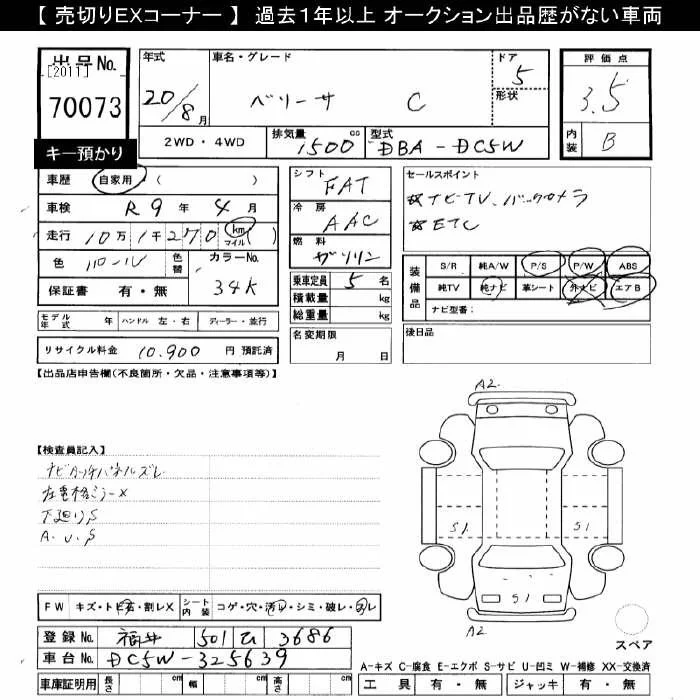 【 売切りEXコーナー 】 過去１年以上 オークション出品歴がない車両
出品No.
[2011]
70073
キー預かり
年式
20/8月
車名・グレード
ベリーサ C
ドア
5
形状
評価点
3.5
内装
B
2WD・4WD
排気量
1500 cc
型式
DBA-DC5W
車歴 自家用 ( )
車検 R9年 4月
走行 10万1千270 km マイル ( )
色 パール 色替 カラーNo. 34K
保証書 有・無
シフト FAT
冷房 AAC
燃料 ガソリン
乗車定員 5 名
積載量 kg
総重量 kg
セールスポイント
☆ナビTV、バックカメラ
☆ETC
装備品
S/R 純A/W P/S P/W ABS
純TV 純ナビ 革シート 外ナビ エアB
ナビ型番:
モデル年式 年 ハンドル 左・右 ディーラー・並行
名変期限 月 日
後日品
リサイクル料金 10.900 円 預託済
【出品店申告欄(不良箇所・欠品・注意事項等)】
【検査員記入】
ナビタッチパネルズレ
左電格ミラーX
下廻りS
A.U.S
A2
S1
S1
S1
A2
スペア
FW キズ・トビ石・割レX シート内装 コゲ・穴・汚レ・シミ・破レ・スレ
登録No. 福井 501 む 3686
車台No. DC5W-325639
車庫証明用 長さ cm 幅 cm 高さ cm
A-キズ C-腐食 E-エクボ S-サビ U-凹ミ W-補修 XX-交換済
工具 有・無 ジャッキ 有・無